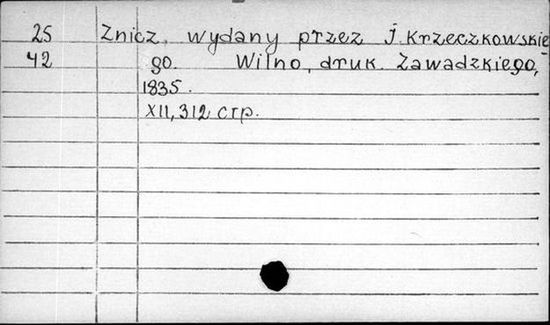 25 Znicz, wydany przez J. Krzeczkowskie
42 go. Wilno, druk. Zawadzkiego,
1835.
XII, 312 стр.